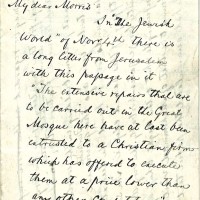 My dear Morris
In "The Jewish
World" of Nov 4th there is
a long letter from Jerusalem
with this passage in it
"The extensive repairs that are
to be carried out in the Great
Mosque here have at last been
entrusted to a Christian firm
which has offered to execute
them at a price lower than
any other